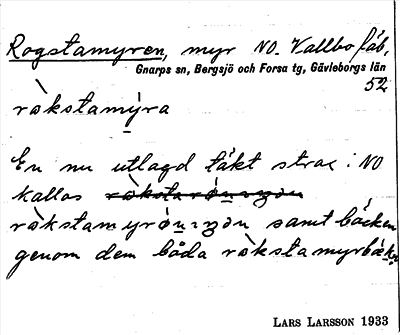 Rogstamyren, myr NO. Vallbo fäb,
Gnarps sn, Bergsjö och Forsa tg, Gävleborgs län
52
ròkstamỳra
En nu utlagd täkt strax i NO
kallas
ròkstamyrø̀nɩŋən samt bäcken
genom dem båda ròkstamyrbäkn
LARS LARSSON 1933